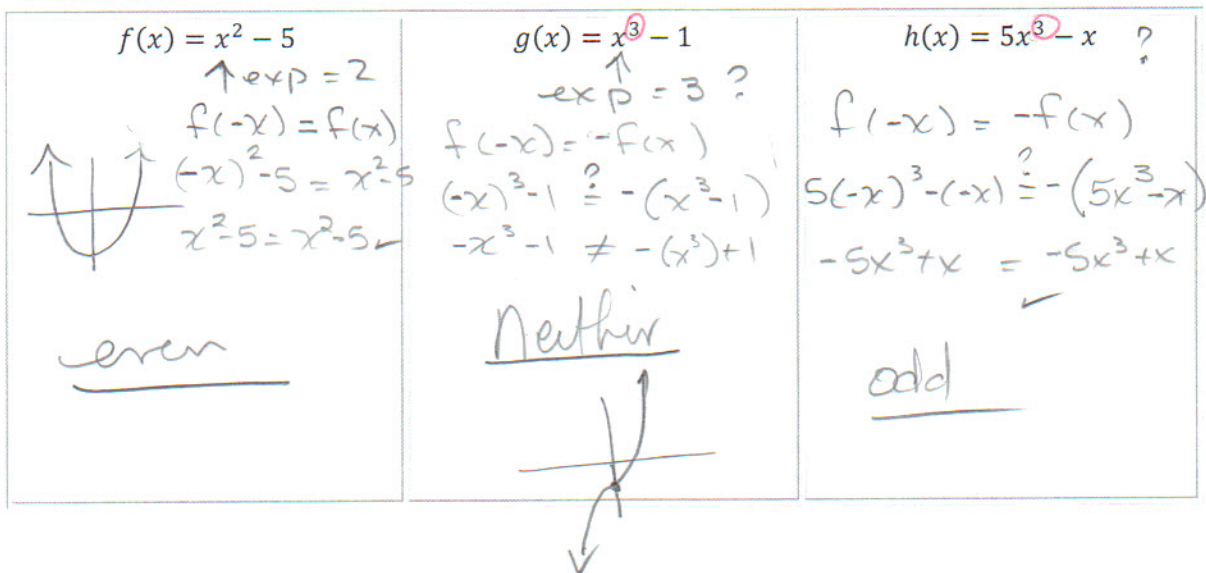 f(x) = x² − 5
↑ exp = 2
f(-x) = f(x)
(-x)² - 5 = x² - 5
x² - 5 = x² - 5 ✓
even
g(x) = x³ − 1
↑
exp = 3 ?
f(-x) = -f(x)
(-x)³ - 1 ≟ -(x³ - 1)
-x³ - 1 ≠ -(x³) + 1
Neithir
h(x) = 5x³ − x ?
f(-x) = -f(x)
5(-x)³ - (-x) ≟ -(5x³ - x)
-5x³ + x = -5x³ + x
✓
odd